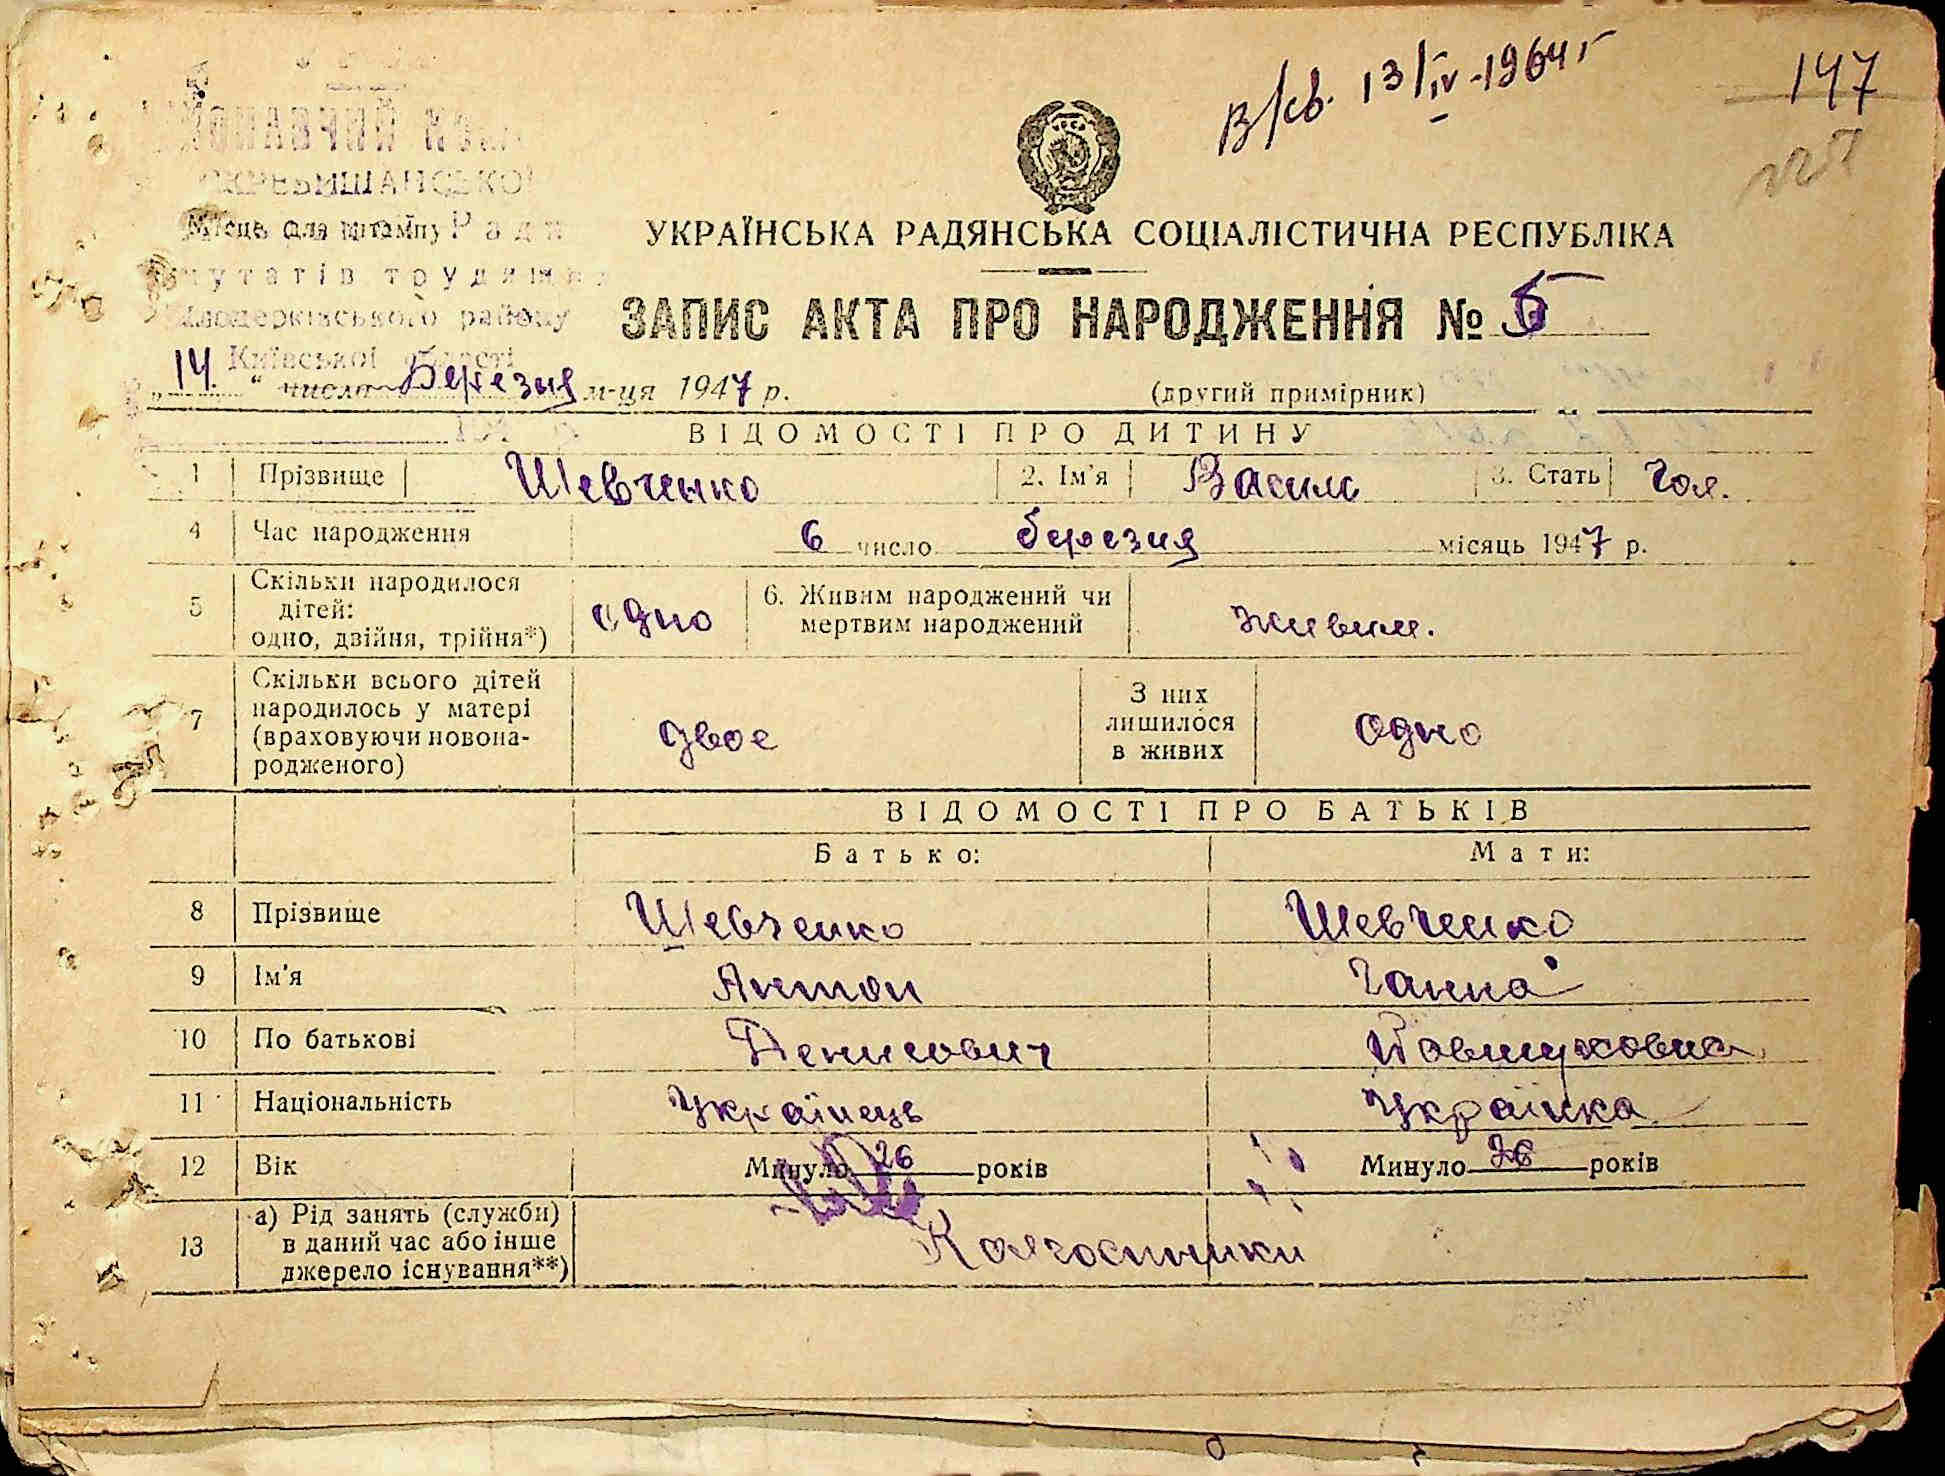 В/св. 13/IV-1964 г
147
Місце для штампу Ради
трудящих
району
Київської області
УКРАЇНСЬКА РАДЯНСЬКА СОЦІАЛІСТИЧНА РЕСПУБЛІКА
ЗАПИС АКТА ПРО НАРОДЖЕННЯ № 5
„14.“ числа Березня м-ця 1947 р.
(другий примірник)
ВІДОМОСТІ ПРО ДИТИНУ
1 Прізвище Шевченко 2. Ім'я Василь 3. Стать Чол.
4 Час народження 6 число березня місяць 1947 р.
5 Скільки народилося дітей: одно, двійня, трійня*) одно 6. Живим народжений чи мертвим народжений живим.
7 Скільки всього дітей народилось у матері (враховуючи новонародженого) двоє З них лишилося в живих одно
ВІДОМОСТІ ПРО БАТЬКІВ
Батько: Мати:
8 Прізвище Шевченко Шевченко
9 Ім'я Антон Ганна
10 По батькові Денисович
11 Національність Українець Українка
12 Вік Минуло 26 років Минуло 26 років
13 а) Рід занять (служби) в даний час або інше джерело існування**) Колгоспники